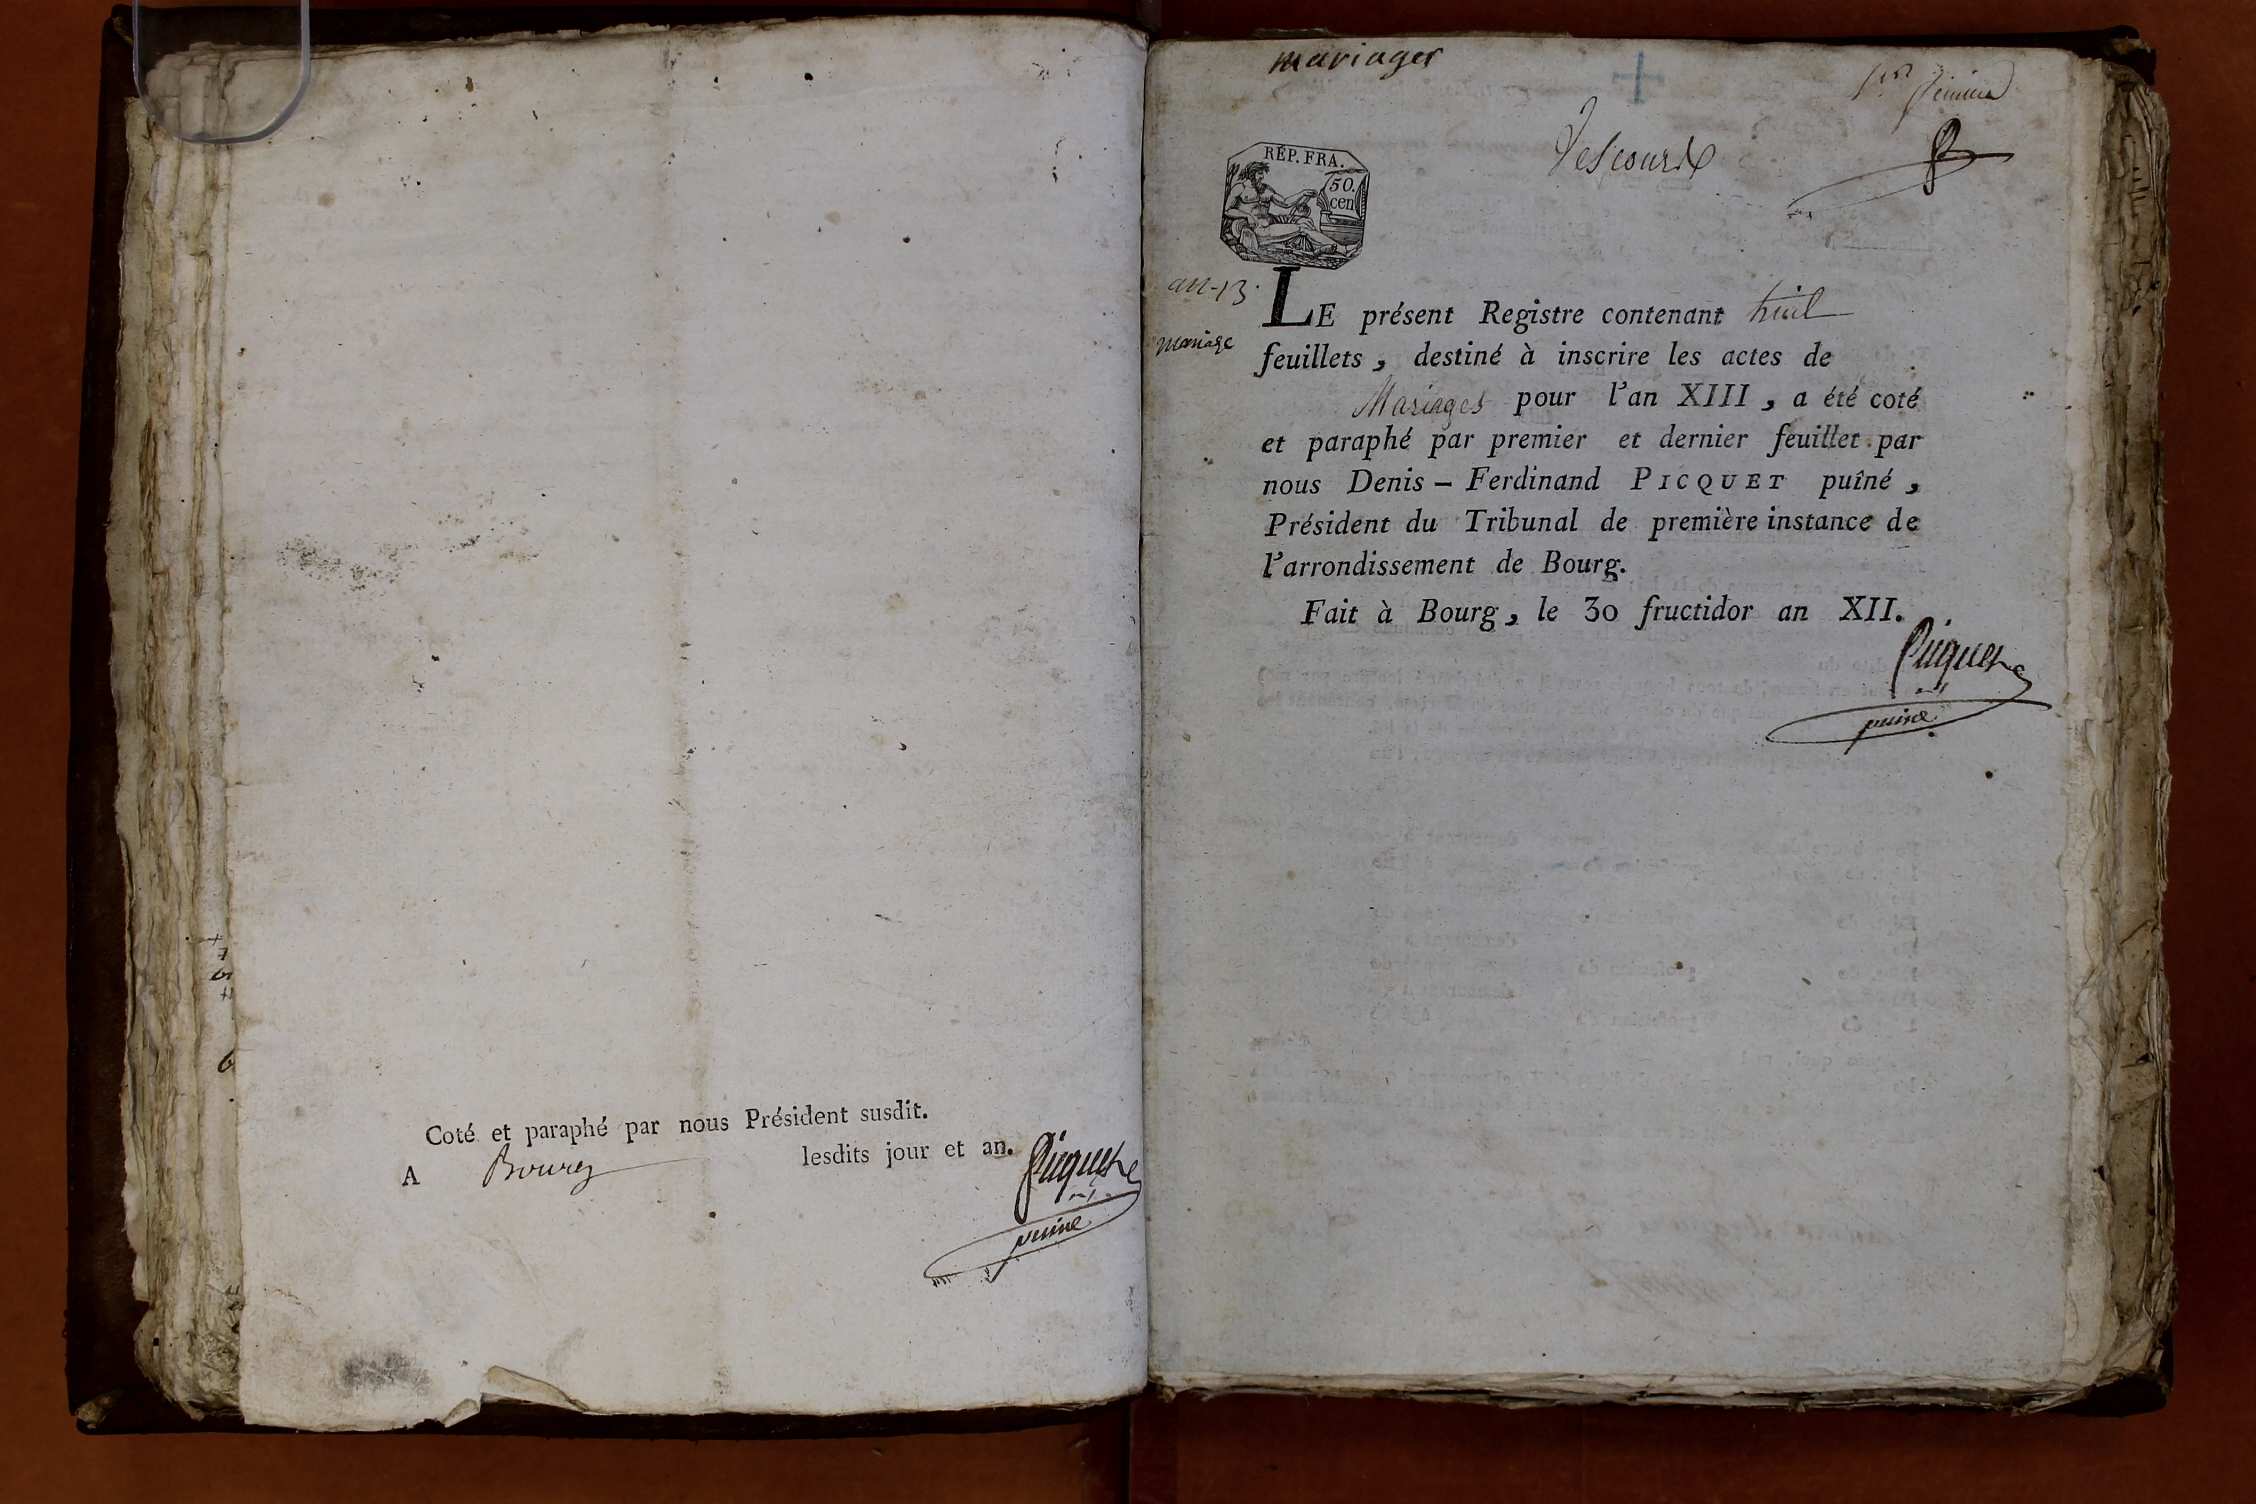 Coté et paraphé par nous Président susdit.
A Bourg lesdits jour et an.
Picquet
puiné
mariages
1er feuillet
RÉP. FRA.
50.
cen
an-13.
mariage
LE présent Registre contenant huit
feuillets, destiné à inscrire les actes de
Mariages pour l'an XIII, a été coté
et paraphé par premier et dernier feuillet par
nous Denis-Ferdinand PICQUET puîné,
Président du Tribunal de première instance de
l'arrondissement de Bourg.
Fait à Bourg, le 30 fructidor an XII.
Picquet
puiné